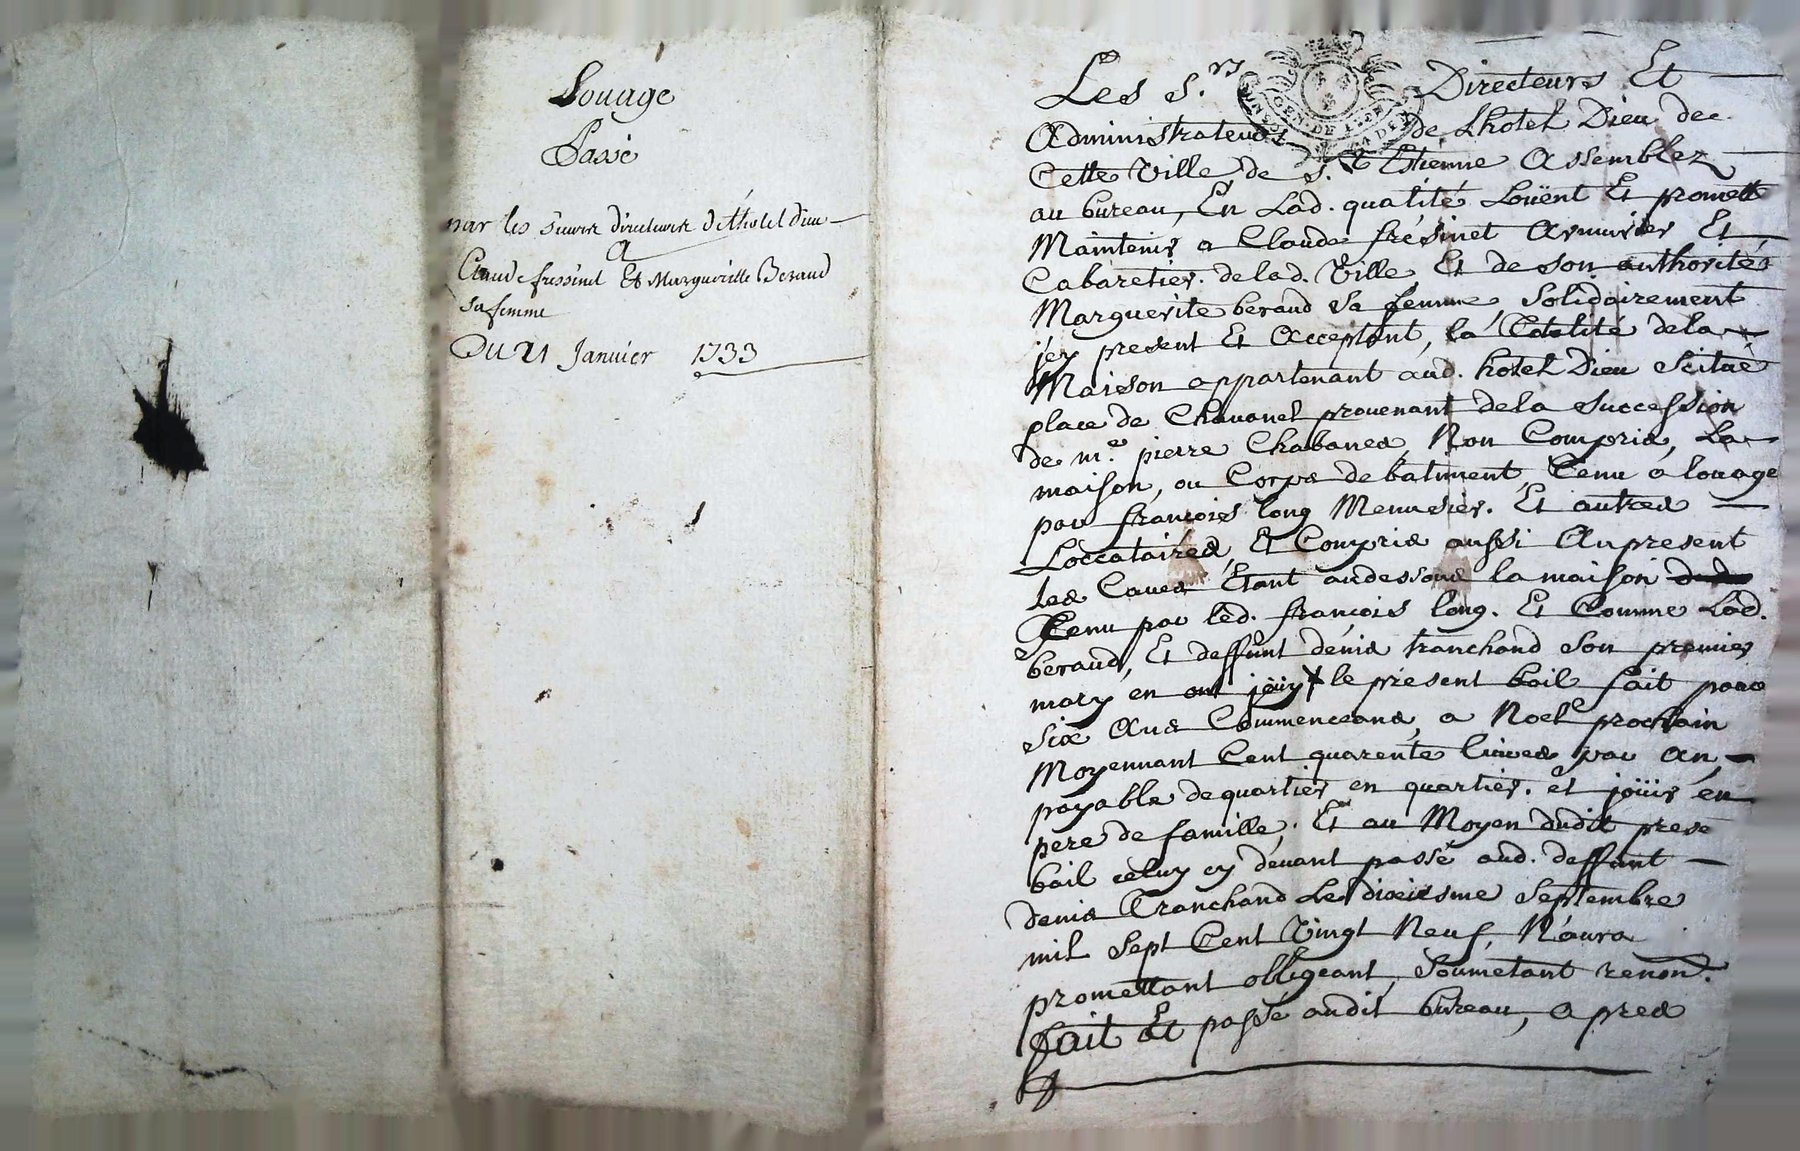 Louage
Passé
par les sieurs directeurs de l'hotel dieu
A
Claude fressinet Et Margueritte Beraud
sa femme
Du 21 Janvier 1733
Les S.rs Directeurs Et
Administrateurs de Lhotel Dieu de
Cette Ville de S.t Etienne Assemblez
au bureau, En Lad. qualité Loüent Et promett
Maintenir a Claude frésinet Armurier Et
Cabaretier de lad. Ville Et de son authorité
Marguerite beraud sa femme Solidairement
icy present Et Acceptant, la Totalité de la
Maison appartenant aud. hotel Dieu Scitué
place de Chavanel provenant de la Succession
de m.e pierre Chabanes, Non Compris, La
maison, ou Corps de batiment Tenu a louage
par françois long Menusier. Et autres
Loccataires, Et Compris aussi Au present
Les Caves Etant audessous la maison
Tenu par led. françois long. Et Comme Lad.
beraud, Et deffunt denis tranchand Son premier
mary en ont jöuy le présent bail fait pour
Six Ans Commenceans, a Noel prochain
Moyennant Cent quarente livres par An,
payable de quartier en quartier. et joüir en
pere de famille, Et au Moyen dudit prese
bail celuy cy devant passé aud. deffunt
denis Tranchand Le dixiesme Septembre
mil Sept Cent Vingt Neuf, N'aura
promettant obligeant, Soumetant renon.
fait Et passé audit bureau, apres